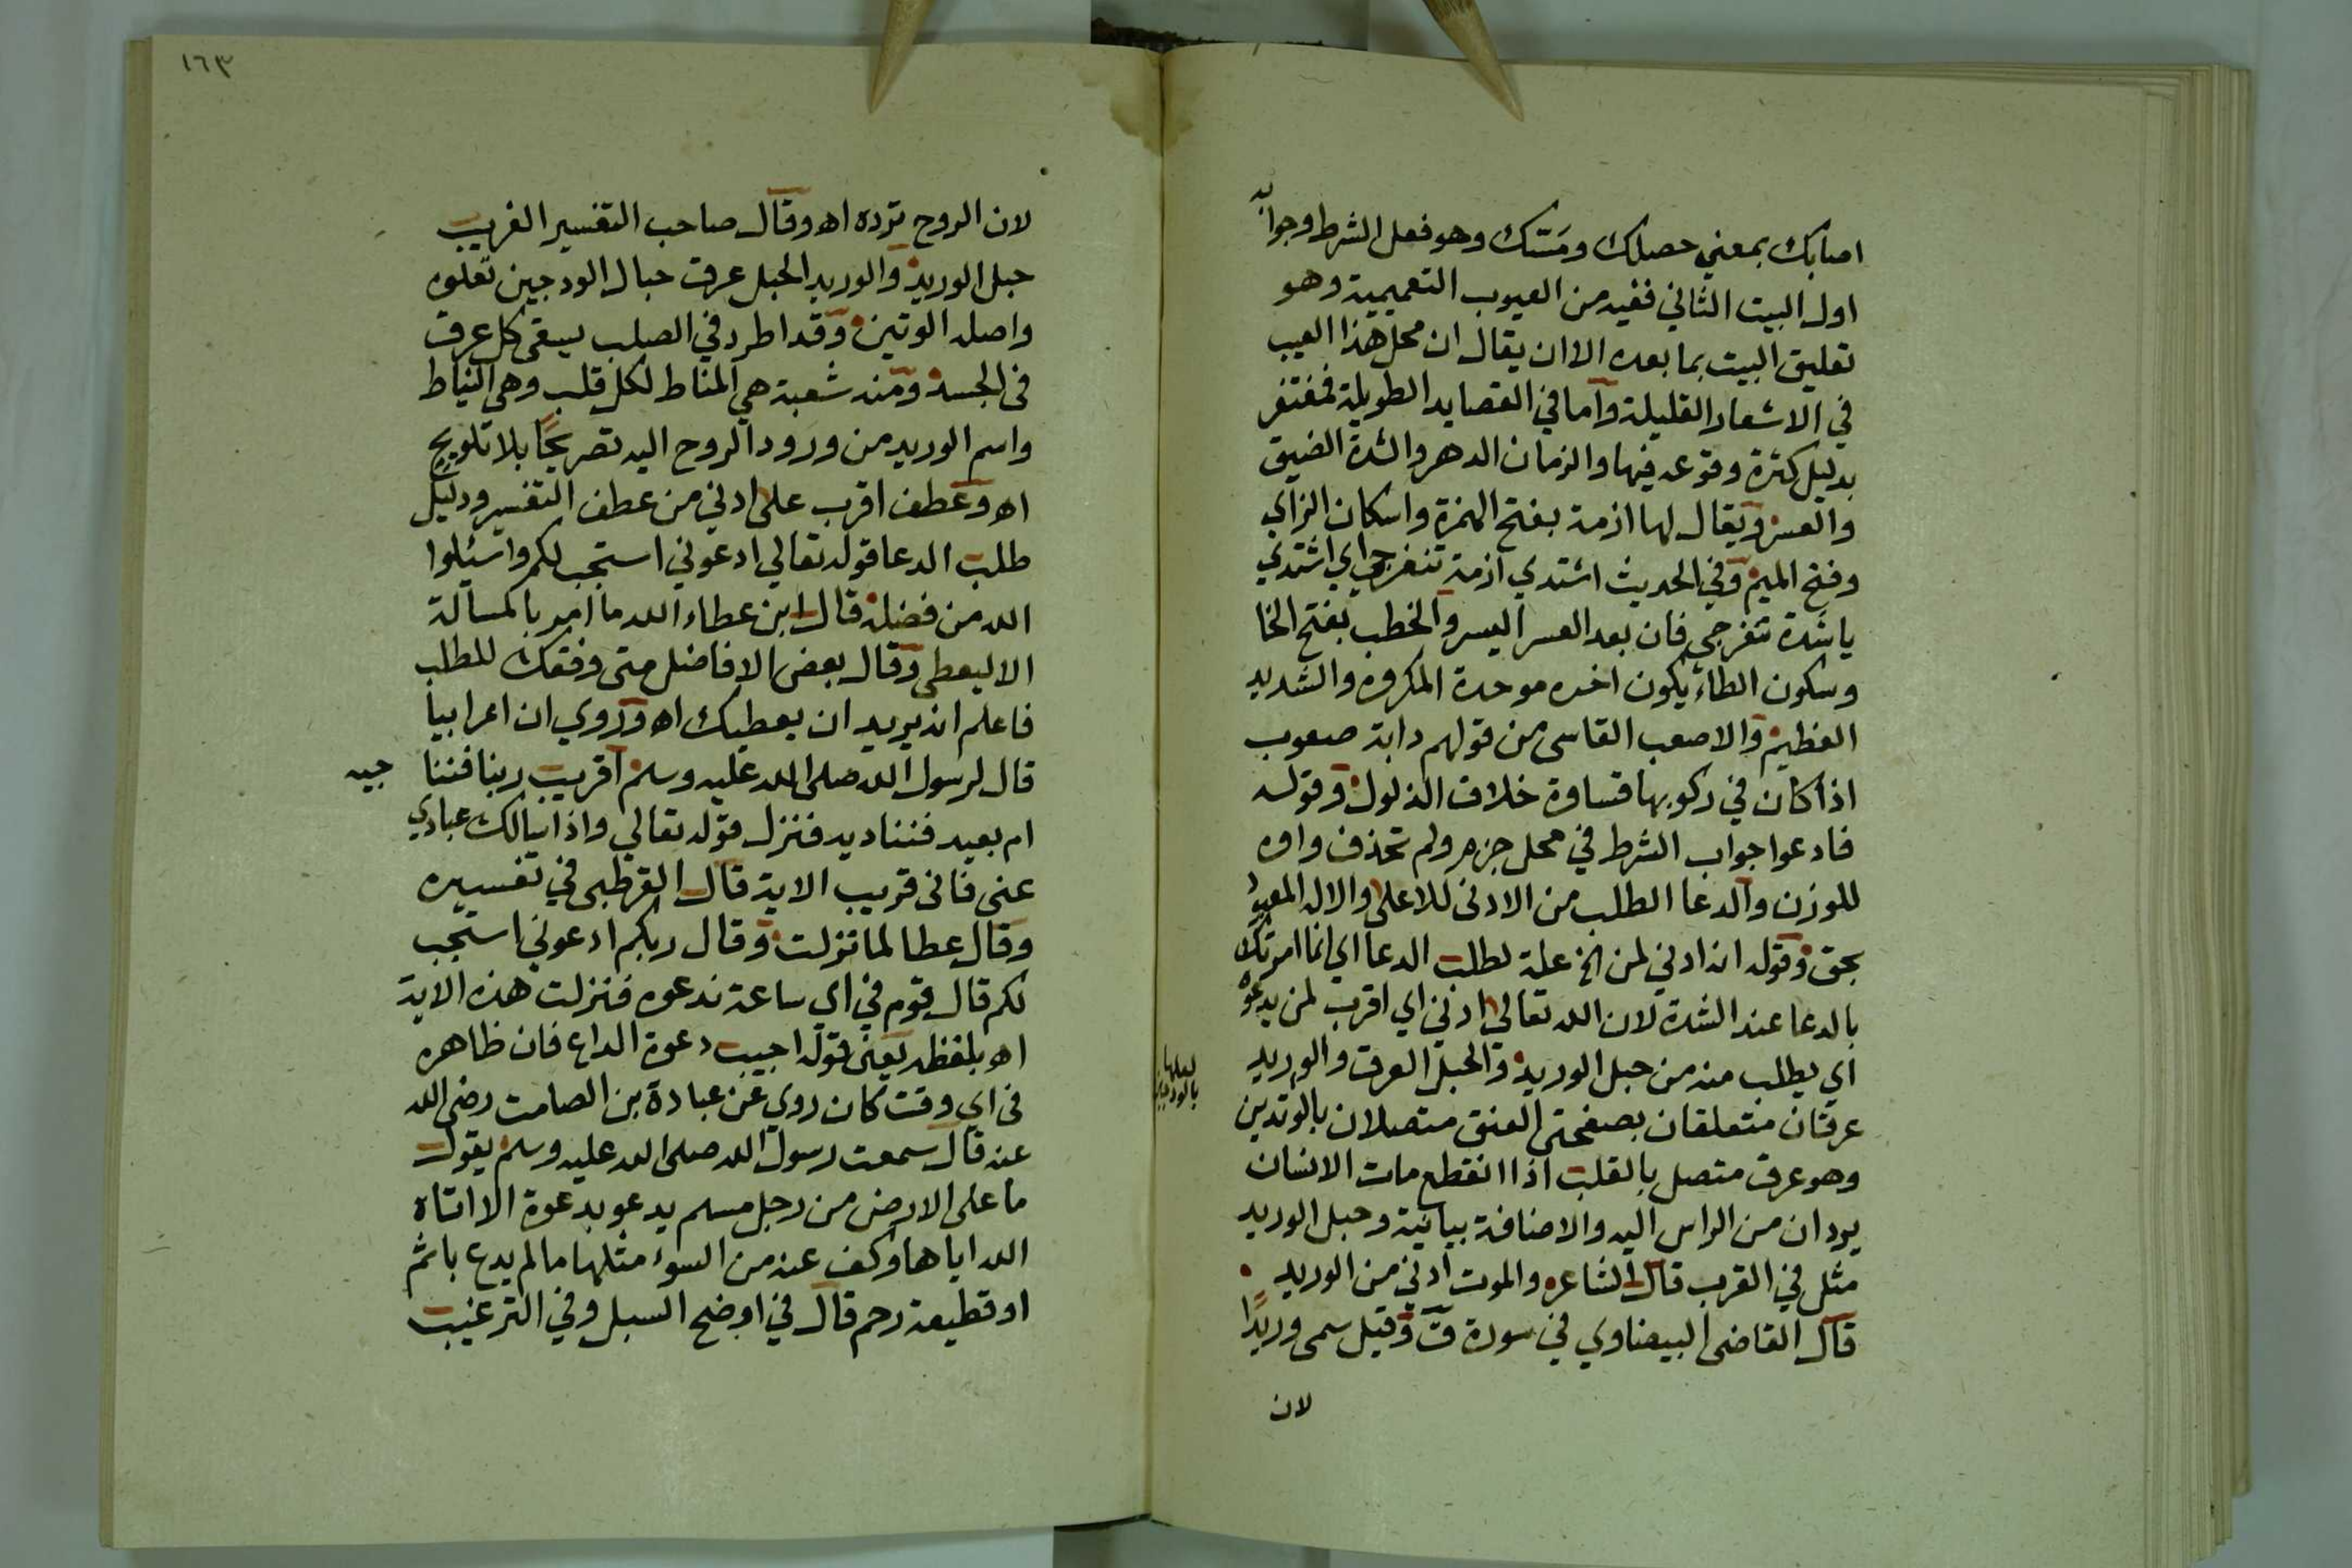 اصابك بمعني حصلك ومَسّك وهو فعل الشرط وجوابه
اول البيت الثاني ففيه من العيوب التعميمية وهو
تعليق البيت بما بعده الا ان يقال ان محل هذا العيب
في الاشعار القليلة واما في القصايد الطويلة فمغتفر
بدليل كثرة وقوعه فيها والزمان الدهر والشدة الضيق
والعسر ويقال لها ازمة بفتح الهمزة واسكان الزاي
وفتح الميم وفي الحديث اشتدي ازمة تنفرجي اي اشتدي
يا شدة تنفرجي فان بعد العسر اليسر والخطب بفتح الخا
وسكون الطاء يكون اخره موحدة المكروه والشديد
العظيم والاصعب القاسي من قولهم دابة صعوب
اذا كان في ركوبها قساوة خلاف الذلول وقوله
فادعوا جواب الشرط في محل جزم ولم تحذف واوه
للوزن والدعا الطلب من الادنى للاعلى والاله المعبود
بحق وقوله انه ادني لمن الخ علة لطلب الدعا اي انما امرتك
بالدعا عند الشدة لان الله تعالي ادني اي اقرب لمن يدعوه
اي يطلب منه من حبل الوريد والحبل العرق والوريد
عرقان متعلقان بصفحتي العنق متصلان بالوتدين
لعلها
وهو عرق متصل بالقلب اذا انقطع مات الانسان
يردان من الراس اليه والاضافة بيانية وحبل الوريد
مثل في القرب قال الشاعر والموت ادني من الوريد
قال القاضي البيضاوي في سورة ق وقيل سمي وريدًا
لان
١٦٣
لان الروح ترده اه وقال صاحب التفسير الغريب
حبل الوريد والوريد الحبل عرق حبال الودجين تعلوه
واصله الوتين وقد اطرد في الصلب يسقي كل عرق
في الجسد ومنه شعبة هي المناط لكل قلب وهي النياط
واسم الوريد من ورود الروح اليه تصريحًا بلا تلويح
اه وعطف اقرب على ادني من عطف التفسير ودليل
طلب الدعا قوله تعالي ادعوني استجب لكم واسئلوا
الله من فضله قال ابن عطاء الله ما امر بالمسالة
الا ليعطي وقال بعض الافاضل متى وفقك للطلب
فاعلم انه يريد ان يعطيك اه وروي ان اعرابيا
قال لرسول الله صلى الله عليه وسلم اقريب ربنا فننا جيه
ام بعيد فنناديه فنزل قوله تعالي واذا سالك عبادي
عني فاني قريب الاية قال القرطبي في تفسيره
وقال عطا لما نزلت وقال ربكم ادعوني استجب
لكم قال قوم في اي ساعة ندعوه فنزلت هذه الاية
اه بلفظه يعني قوله اجيب دعوة الداع فان ظاهره
في اي وقت كان روي عن عبادة بن الصامت رضي الله
عنه قال سمعت رسول الله صلى الله عليه وسلم يقول
ما على الارض من رجل مسلم يدعو بدعوة الا اتاه
الله اياها وكف عنه من السوء مثلها ما لم يدع باثم
او قطيعة رحم قال في اوضح السبل وفي الترغيب